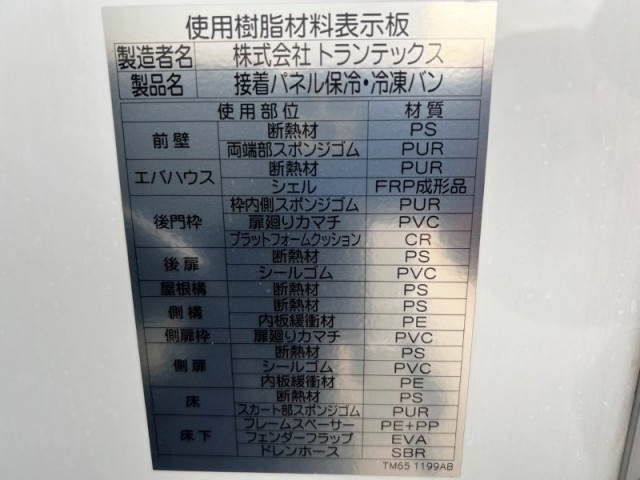 使用樹脂材料表示板
製造者名 株式会社 トランテックス
製品名 接着パネル保冷・冷凍バン
使用部位 材質
前壁 断熱材 PS
両端部スポンジゴム PUR
エバハウス 断熱材 PUR
シェル FRP成形品
後門枠 枠内側スポンジゴム PUR
扉廻りカマチ PVC
プラットフォームクッション CR
後扉 断熱材 PS
シールゴム PVC
屋根構 断熱材 PS
側構 断熱材 PS
内板緩衝材 PE
側扉枠 扉廻りカマチ PVC
側扉 断熱材 PS
シールゴム PVC
内板緩衝材 PE
床 断熱材 PS
スカート部スポンジゴム PUR
床下 フレームスペーサー PE+PP
フェンダーフラップ EVA
ドレンホース SBR
TM65 1199AB